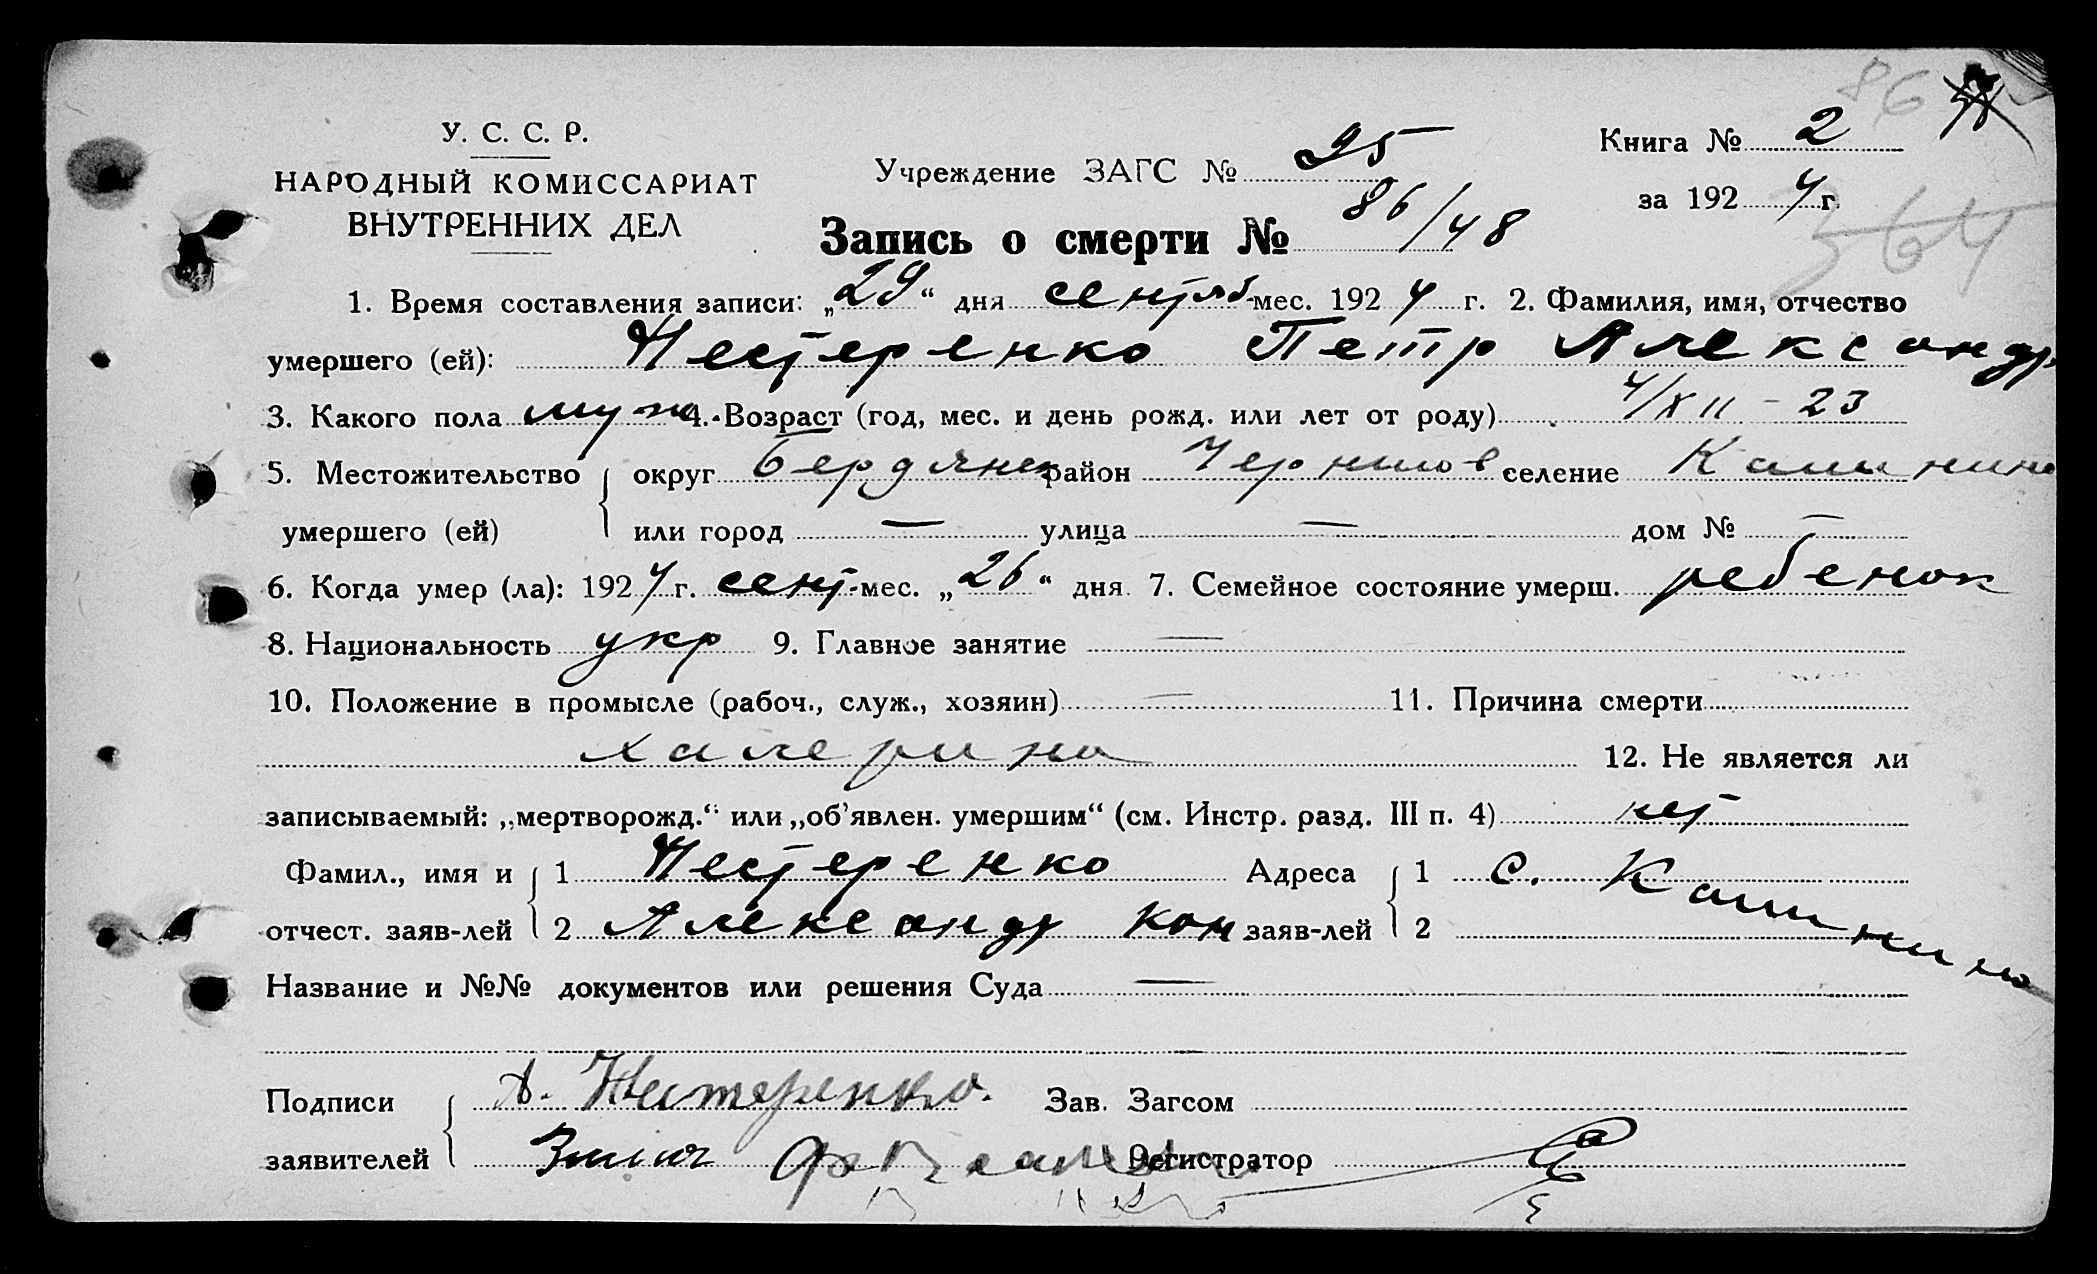 86
У. С. С. Р.
НАРОДНЫЙ КОМИССАРИАТ
ВНУТРЕННИХ ДЕЛ
Учреждение ЗАГС № 25
Книга № 2
за 1924 г.
364
Запись о смерти № 86/48
1. Время составления записи: „29“ дня сентяб-мес. 1924 г. 2. Фамилия, имя, отчество
умершего (ей): Нестеренко Петр Александр
3. Какого пола муж 4. Возраст (год, мес. и день рожд. или лет от роду) 4/XII - 23
5. Местожительство округ Бердянск район Черниговск селение Калинино
умершего (ей) или город — улица — дом № —
6. Когда умер (ла): 1924 г. сент-мес. „26“ дня. 7. Семейное состояние умерш. ребенок
8. Национальность укр 9. Главное занятие —
10. Положение в промысле (рабоч., служ., хозяин) — 11. Причина смерти
халерина 12. Не является ли
записываемый: „мертворожд.“ или „об’явлен. умершим“ (см. Инстр. разд. III п. 4) нет
Фамил., имя и 1 Нестеренко Адреса 1 с. Калинино
отчест. заяв-лей 2 Александр Кон заяв-лей 2
Название и №№ документов или решения Суда —
Подписи А. Нестеренко. Зав. Загсом
заявителей Регистратор